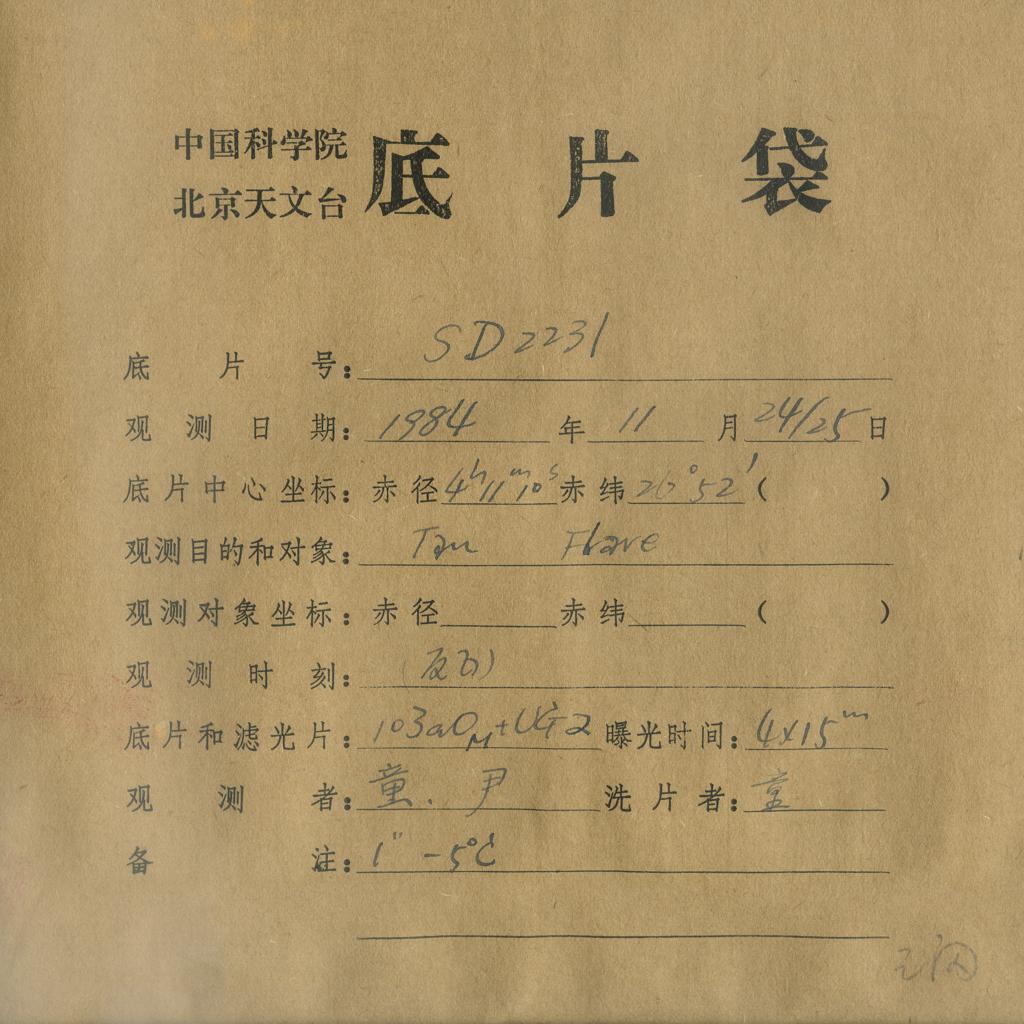 中国科学院
北京天文台
底片袋
底片号：SD2231
观测日期：1984年11月24/25日
底片中心坐标：赤径4h11m10s赤纬26°52′（ ）
观测目的和对象：Tau Flare
观测对象坐标：赤径 赤纬 （ ）
观测时刻：（反面）
底片和滤光片：103aO_M+UG2 曝光时间：4x15m
观测者：童.尹 洗片者：童
备注：1″ -5°C